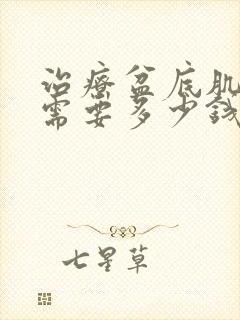 治疗盆底肌
需要多少钱
七星草